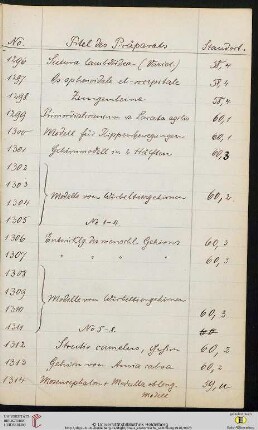 No. Titel des Präparats Standort.
1296 Sutura lambdoidea (Varietät) 58,4
1297 Os sphenoidale et occipitale 58,4
1298 Zungenbeine 58,4
1299 Primordialcranium v. Lacerta agilis 60,1
1300 Modell für Rippenbewegungen 60,1
1301 Gehirnmodell in 2 Hälften 60,3
1302
1303
Modelle von Wirbeltiergehirnen 60,2
1304
1305 No 1-4.
1306 Entwicklg. des menschl. Gehirns 60,2
1307 " " " " 60,2
1308
1309
Modelle von Wirbeltiergehirnen
1310 60,3
1311 No 5-8.
1312 Struthio camelus, 60,2
1313 Gehirn von 60,2
1314 Mesencephalon + Medulla oblong.
Modell